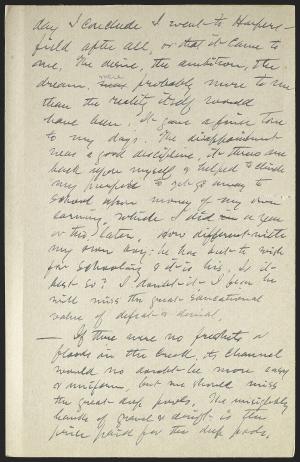 day I conclude I went to Harpers-
field after all, or that it came to
me. The desire, the ambition, the
dream, were probably more to me
than the reality itself would
have been. It gave a fine tone
to my days. The disappointment
was a good discipline, it threw me
back upon myself & helped
my purpose to get away to
school upon money of my own
earning, which I did in a year
or this later. How different with
my own boy: he has but to wish
for schooling & it is his. Is it
best so? I doubt it. I fear he
will miss the great educational
value of defeat & denial.
— If there were no freshets or
floods in the creek, its channel
would no doubt be more easy
& uniform, but we should miss
the great deep pools. The unsightly
banks of gravel & drift is the
price paid for the deep pools.